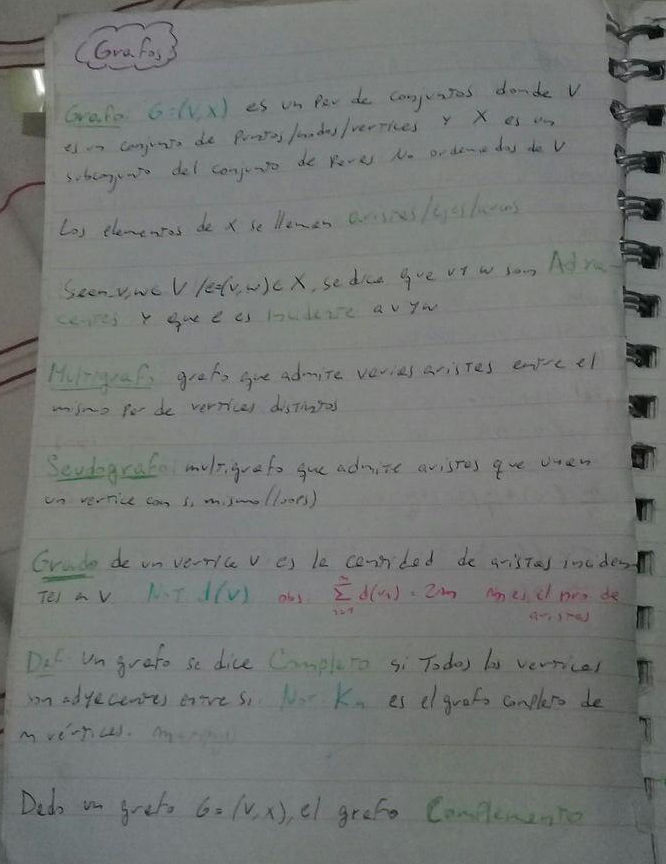 Grafos
Grafo: G=(V,X) es un par de conjuntos donde V
es un conjunto de puntos/nodos/vertices y X es un
subconjunto del conjunto de pares no ordenados de V
Los elementos de X se llaman aristas/ejes/arcos
Sean v,w∈V/e=(v,w)∈X, se dice que v y w son Adya-
centes y que e es Incidente a v y w
Multigrafo grafo que admite varias aristas entre el
mismo par de vertices distintos
Seudografo: multigrafo que admite aristas que unen
un vertice con si mismo (loops)
Grado de un vertice v es la cantidad de aristas inciden
tes a v Not. d(v) obs. ∑ i=1 n d(vi) = 2m m es el nro de
aristas
Def Un grafo se dice Completo si Todos los vertices
son adyacentes entre si. Not. Kn es el grafo completo de
n vértices.
Dado un grafo G=(V,X), el grafo Complemento